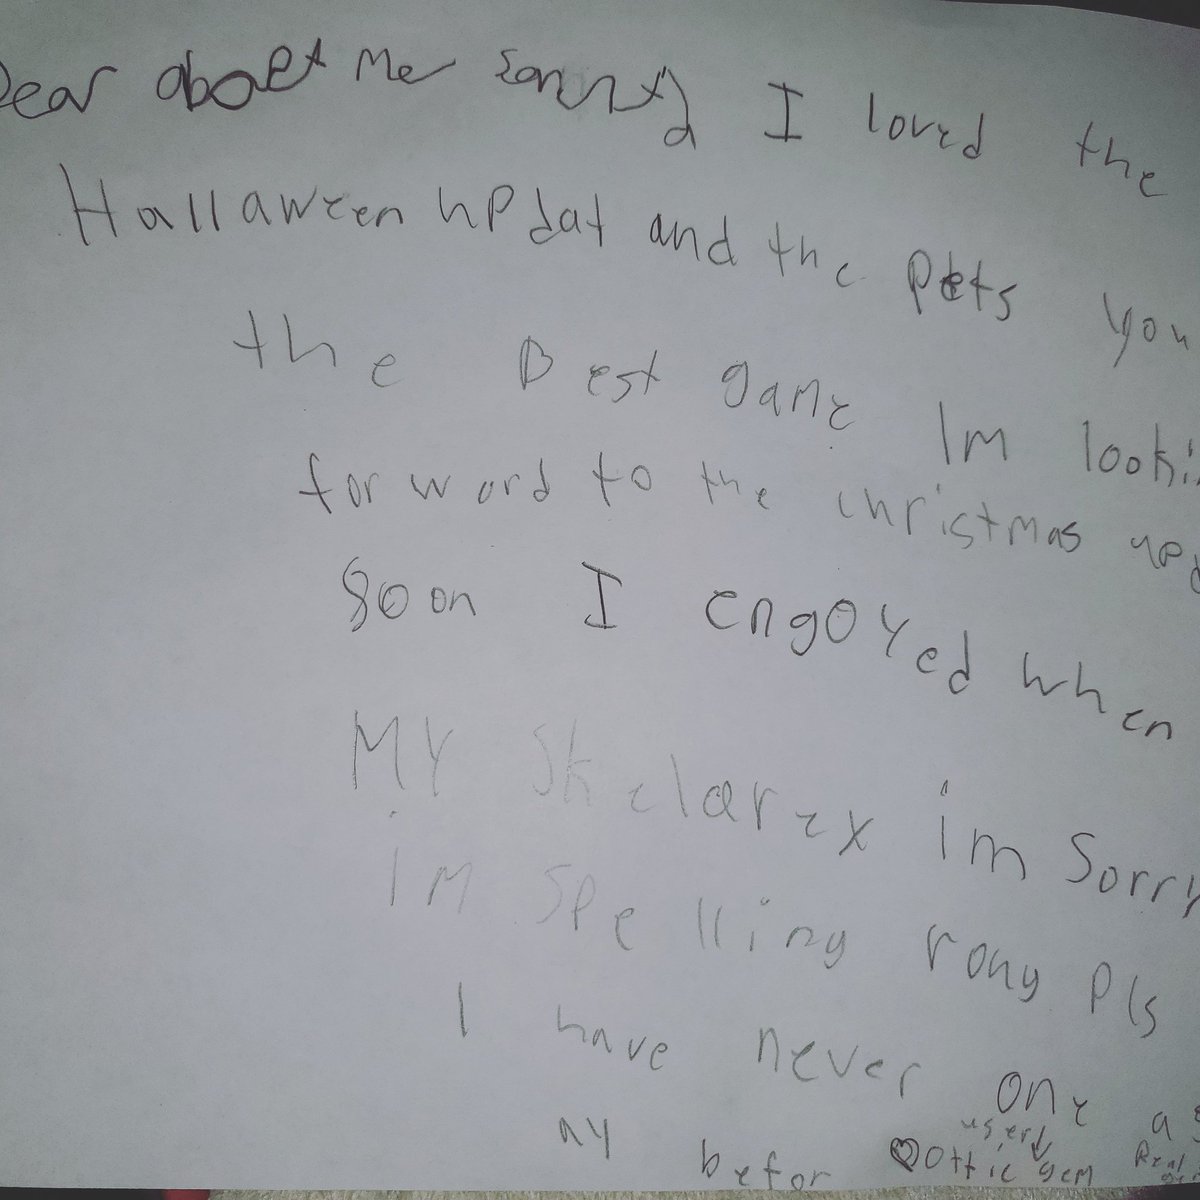 Dear aboet Me I loved the
Hallaween updat and the Pets you
the Best game Im looki
for word to the christmas upd
Soon I engoyed when
My Skelarex im Sorry
im Spelling rong Pls
I have never one a
ny befor
userd
♡Ottic gem
Real